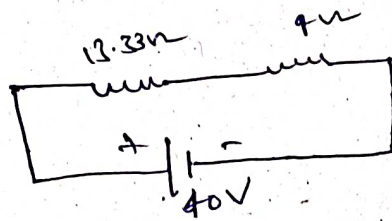 13.33Ω 4Ω
+ -
40V